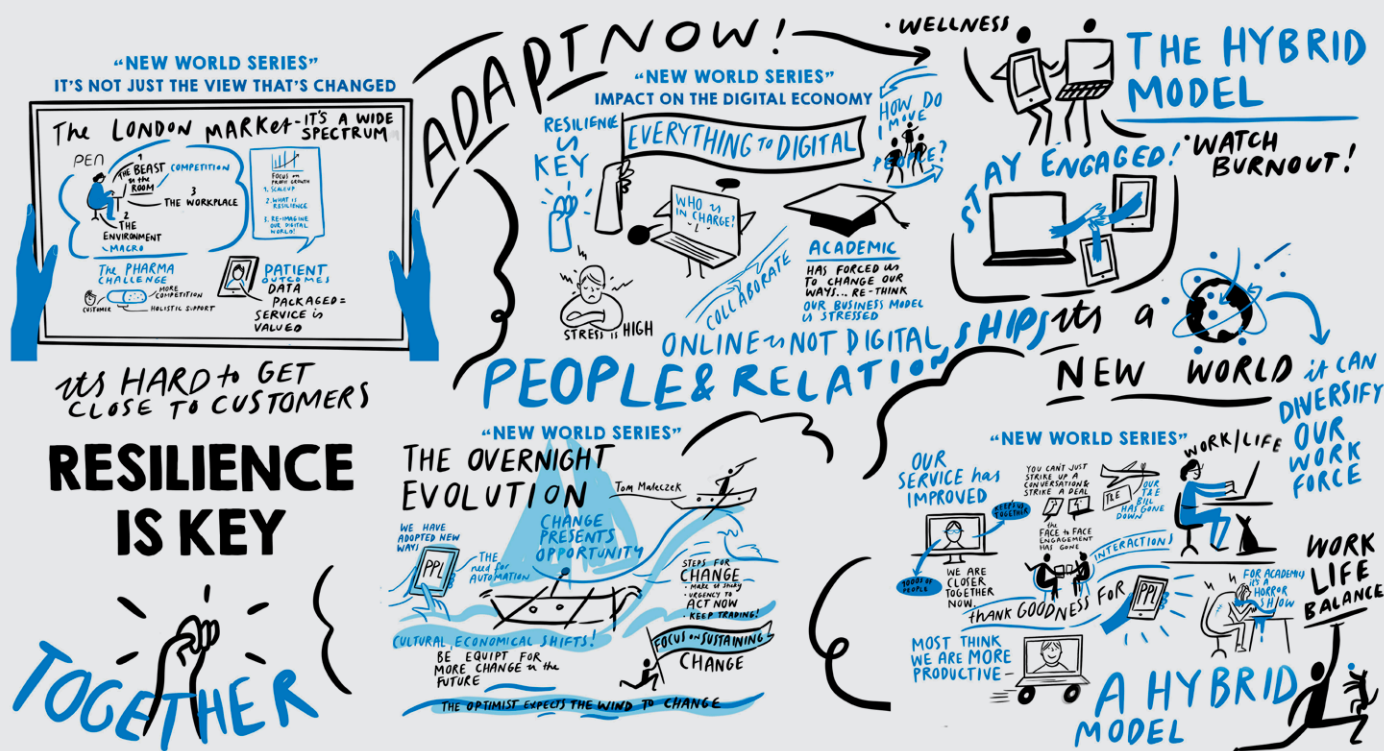 "NEW WORLD SERIES"
IT'S NOT JUST THE VIEW THAT'S CHANGED
The LONDON MARKET - IT'S A WIDE
SPECTRUM
PEN
1
THE BEAST
in the
ROOM
COMPETITION
3
THE WORKPLACE
2
THE
ENVIRONMENT
MACRO
FOCUS on
PROFIT GROWTH
1. SCALEUP
2. WHAT IS
RESILIENCE
3. RE-IMAGINE
OUR DIGITAL
WORLD!
The PHARMA
CHALLENGE
MORE
COMPETITION
CUSTOMER
HOLISTIC SUPPORT
PATIENT
OUTCOMES
DATA
PACKAGED =
SERVICE is
VALUED
its HARD to GET
CLOSE TO CUSTOMERS
RESILIENCE
IS KEY
TOGETHER
ADAPT NOW!
"NEW WORLD SERIES"
IMPACT ON THE DIGITAL ECONOMY
RESILIENCE
is
KEY
EVERYTHING to DIGITAL
HOW DO
I MOVE
PEOPLE?
WHO is
IN CHARGE?
STRESS is HIGH
COLLABORATE
ACADEMIC
HAS FORCED us
TO CHANGE OUR
WAYS... RE-THINK
OUR BUSINESS MODEL
is STRESSED
ONLINE is NOT DIGITAL
PEOPLE & RELATIONSHIPS
• WELLNESS
THE HYBRID
MODEL
• WATCH
BURNOUT!
STAY ENGAGED!
its a
NEW WORLD
it CAN
DIVERSIFY
OUR
WORK
FORCE
"NEW WORLD SERIES"
THE OVERNIGHT
EVOLUTION
Tom Maleczek
WE HAVE
ADOPTED NEW
WAYS
PPL
The
need for
AUTOMATION
CHANGE
PRESENTS
OPPORTUNITY
STEPS FOR
CHANGE
• URGENCY TO
ACT NOW
• KEEP TRADING!
CULTURAL, ECONOMICAL SHIFTS!
BE EQUIPT FOR
MORE CHANGE in the
FUTURE
FOCUS on SUSTAINING
CHANGE
THE OPTIMIST EXPECTS THE WIND TO CHANGE
"NEW WORLD SERIES"
OUR
SERVICE has
IMPROVED
KEEPS US
TOGETHER
1000s OF
PEOPLE
WE ARE
CLOSER
TOGETHER
NOW.
YOU CAN'T JUST
STRIKE UP A
CONVERSATION &
STRIKE A DEAL
the
FACE to FACE
ENGAGEMENT
HAS GONE
OUR
T&E
BILL
HAS GONE
DOWN
INTERACTIONS
WORK/LIFE
THANK GOODNESS FOR
PPL
FOR ACADEMIC
IT'S A
HORROR
SHOW
MOST THINK
WE ARE MORE
PRODUCTIVE -
WORK
LIFE
BALANCE
A HYBRID
MODEL